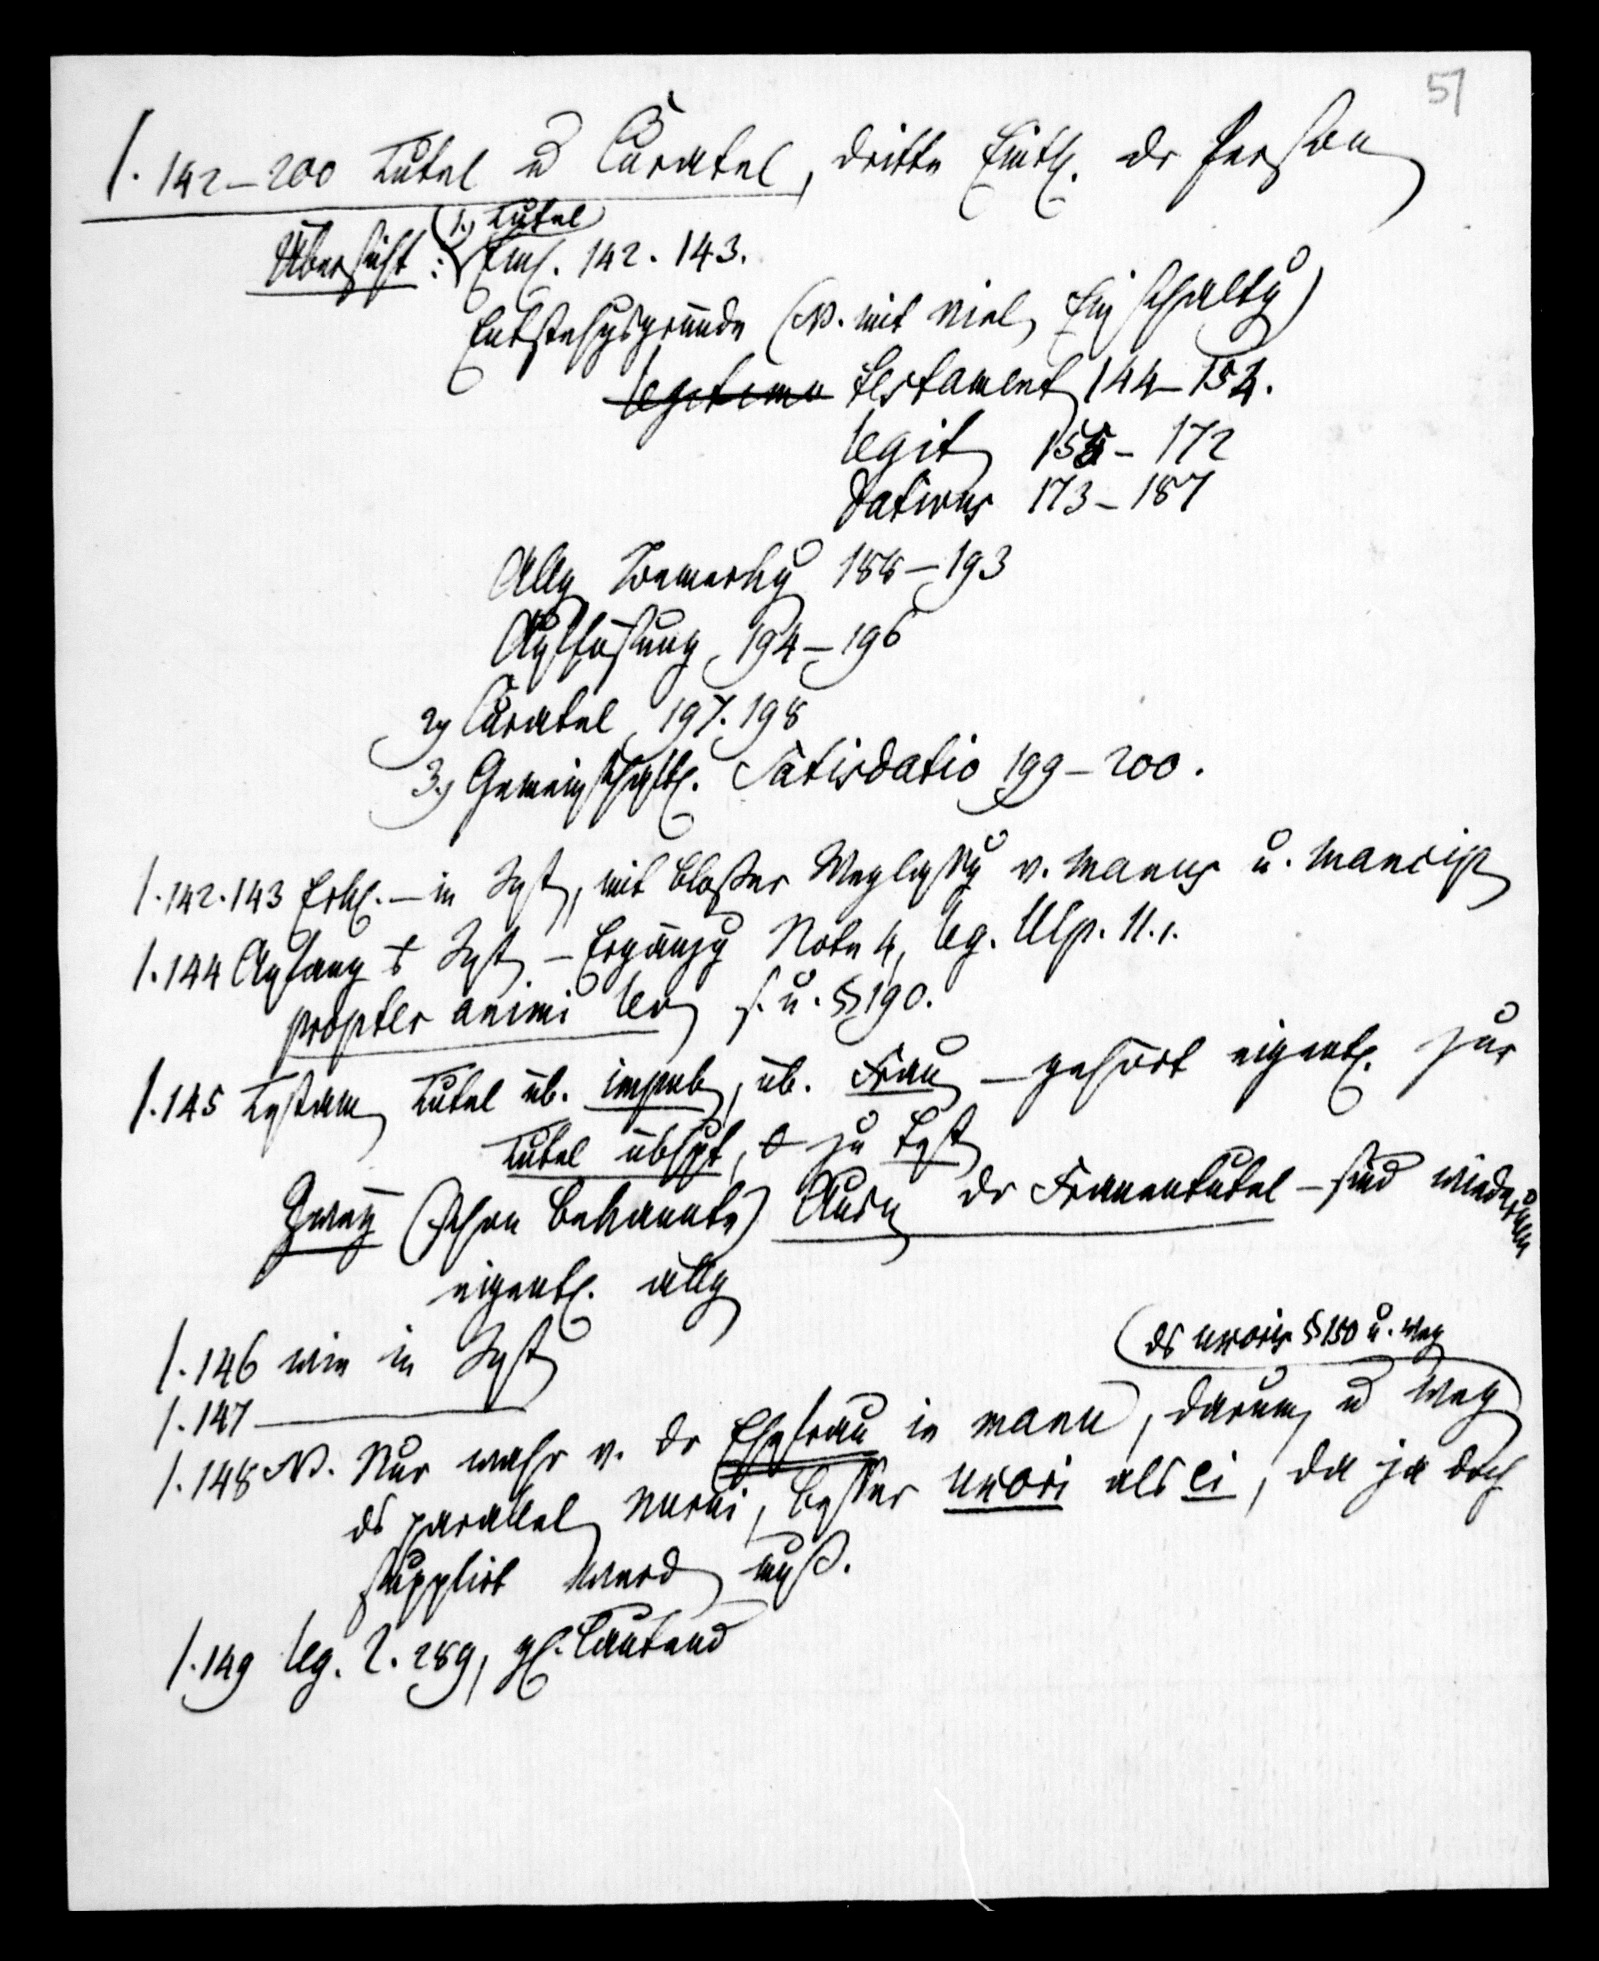 57
§. 142–200 Tutel u Curatel, dritte Einth. dr Person
Übersicht: 1.) Tutel
Einl. 142. 143.
Entstehgsgründe (N. mit viel Einschaltg)
legitima testament 144–154.
legit 155–172
Dativus 173–187
Allg Bemerkg 188–193
Auflösung 194–196
2) Curatel 197. 198
3.) Gemeinschaftl. Satisdatio 199–200.
§. 142. 143 Erkl. – in Syst, mit bloßer Weglassg v. manus u. mancip
§. 144 Anfang Syst – Ergänzg Note 4, leg. Ulp. 11. 1.
propter animi lev s. u. § 190.
§. 145 Testam Tutel üb. impub, üb. Frau – gehört eigentl. zur
Tutel übhpt, zu Test
Zweg (schon bekannte) Ausn dr Frauentutel – sind wiederum
eigentl. allg
§. 146 wie in Syst
§. 147 ———
(ds uxoris § 150 u. weg
§. 148 N. Nur wahr v. dr Ehefrau in manu, darum u weg
ds parallel nurui, besser uxori als ei, da ja doch
supplirt werd muß.
§. 149 leg. 2. 289, gl. lautend